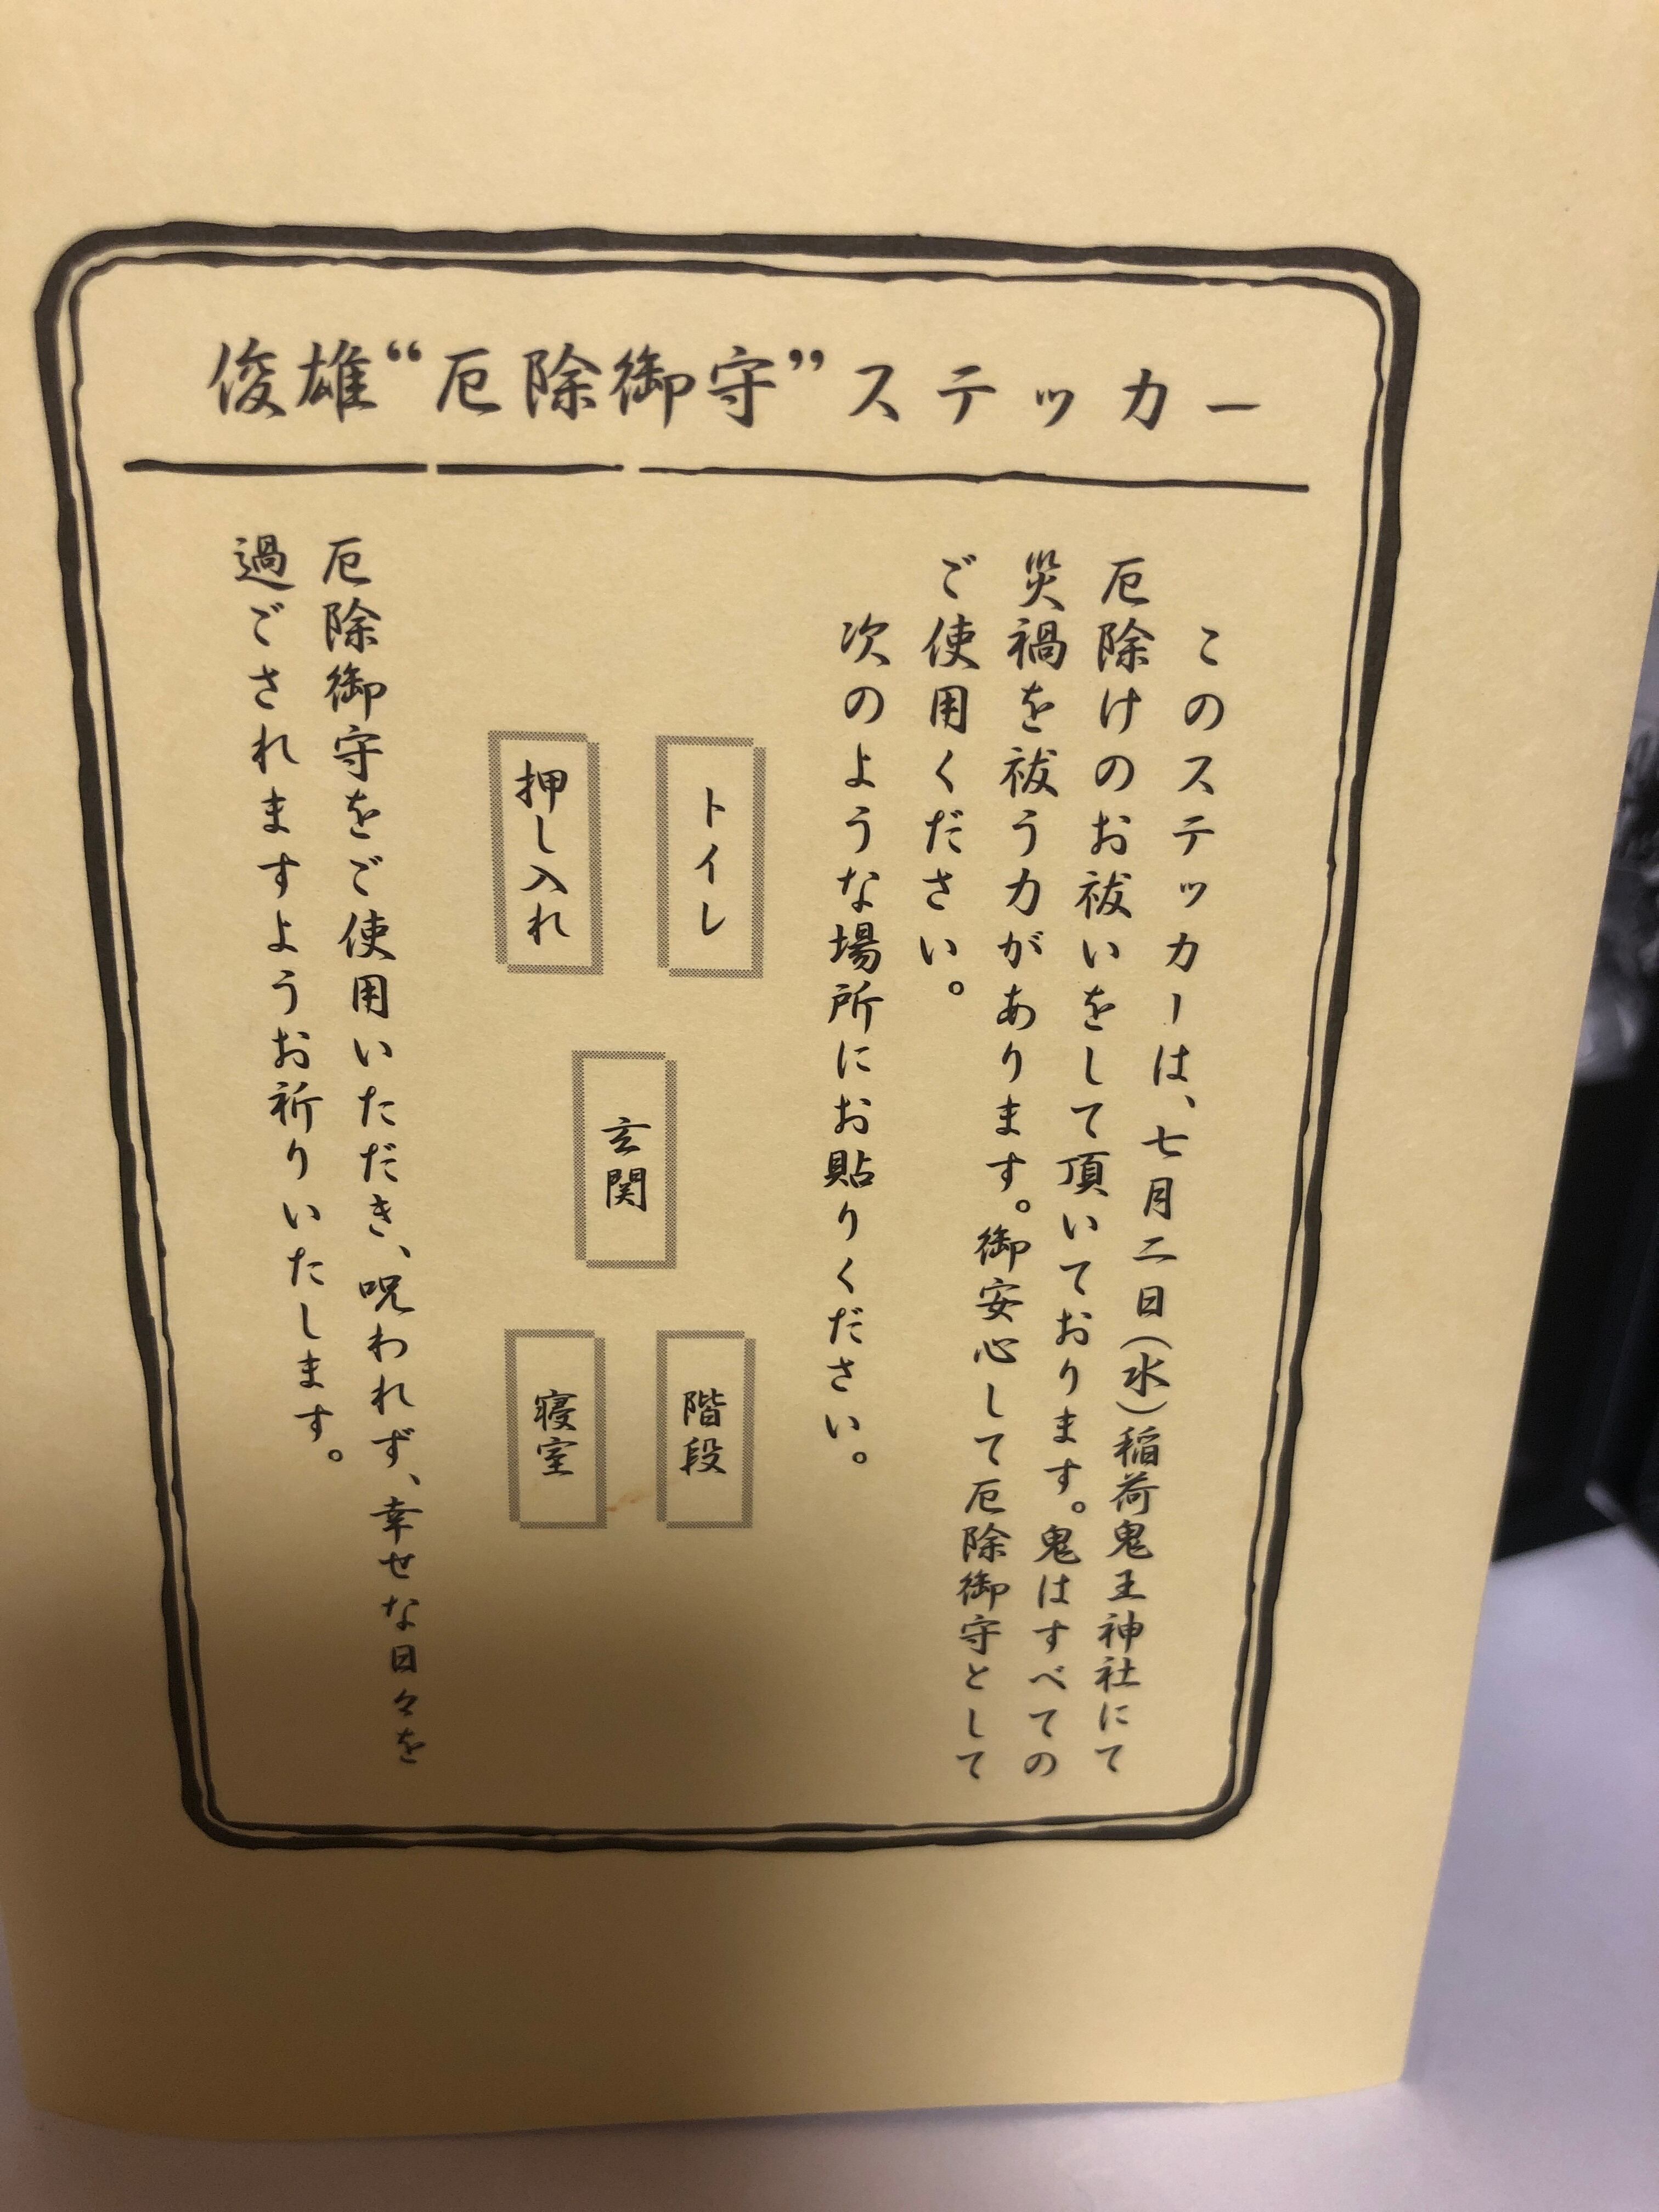 俊雄“厄除御守”ステッカー
このステッカーは、七月二日(水)稲荷鬼王神社にて
厄除けのお祓いをして頂いております。鬼はすべての
災禍を祓う力があります。御安心して厄除御守として
ご使用ください。
次のような場所にお貼りください。
トイレ
階段
玄関
押し入れ
寝室
厄除御守をご使用いただき、呪われず、幸せな日々を
過ごされますようお祈りいたします。